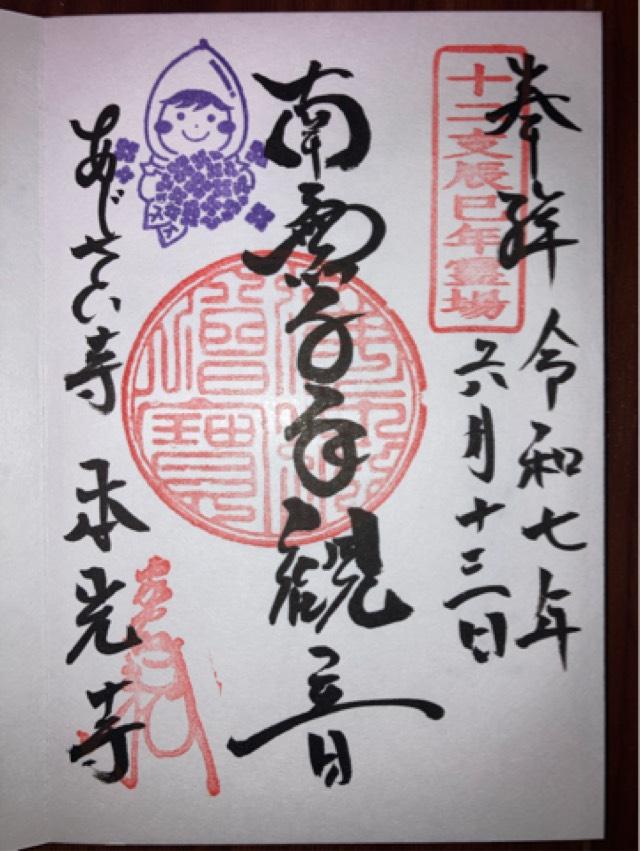 奉拝 令和七年
六月十三日
十二支辰巳年霊場
南無子安観音
佛法僧寶
あじさい寺 本光寺